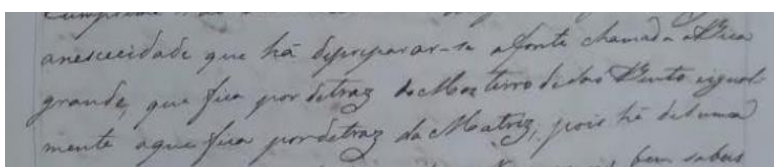 anescecidade que há depreparar-se afonte chamada aBica
grande, que fica por detraz do Mosteiro de São Bento eigual-
mente aque fica pordetraz da Matriz, pois hé de huma
bem sabes